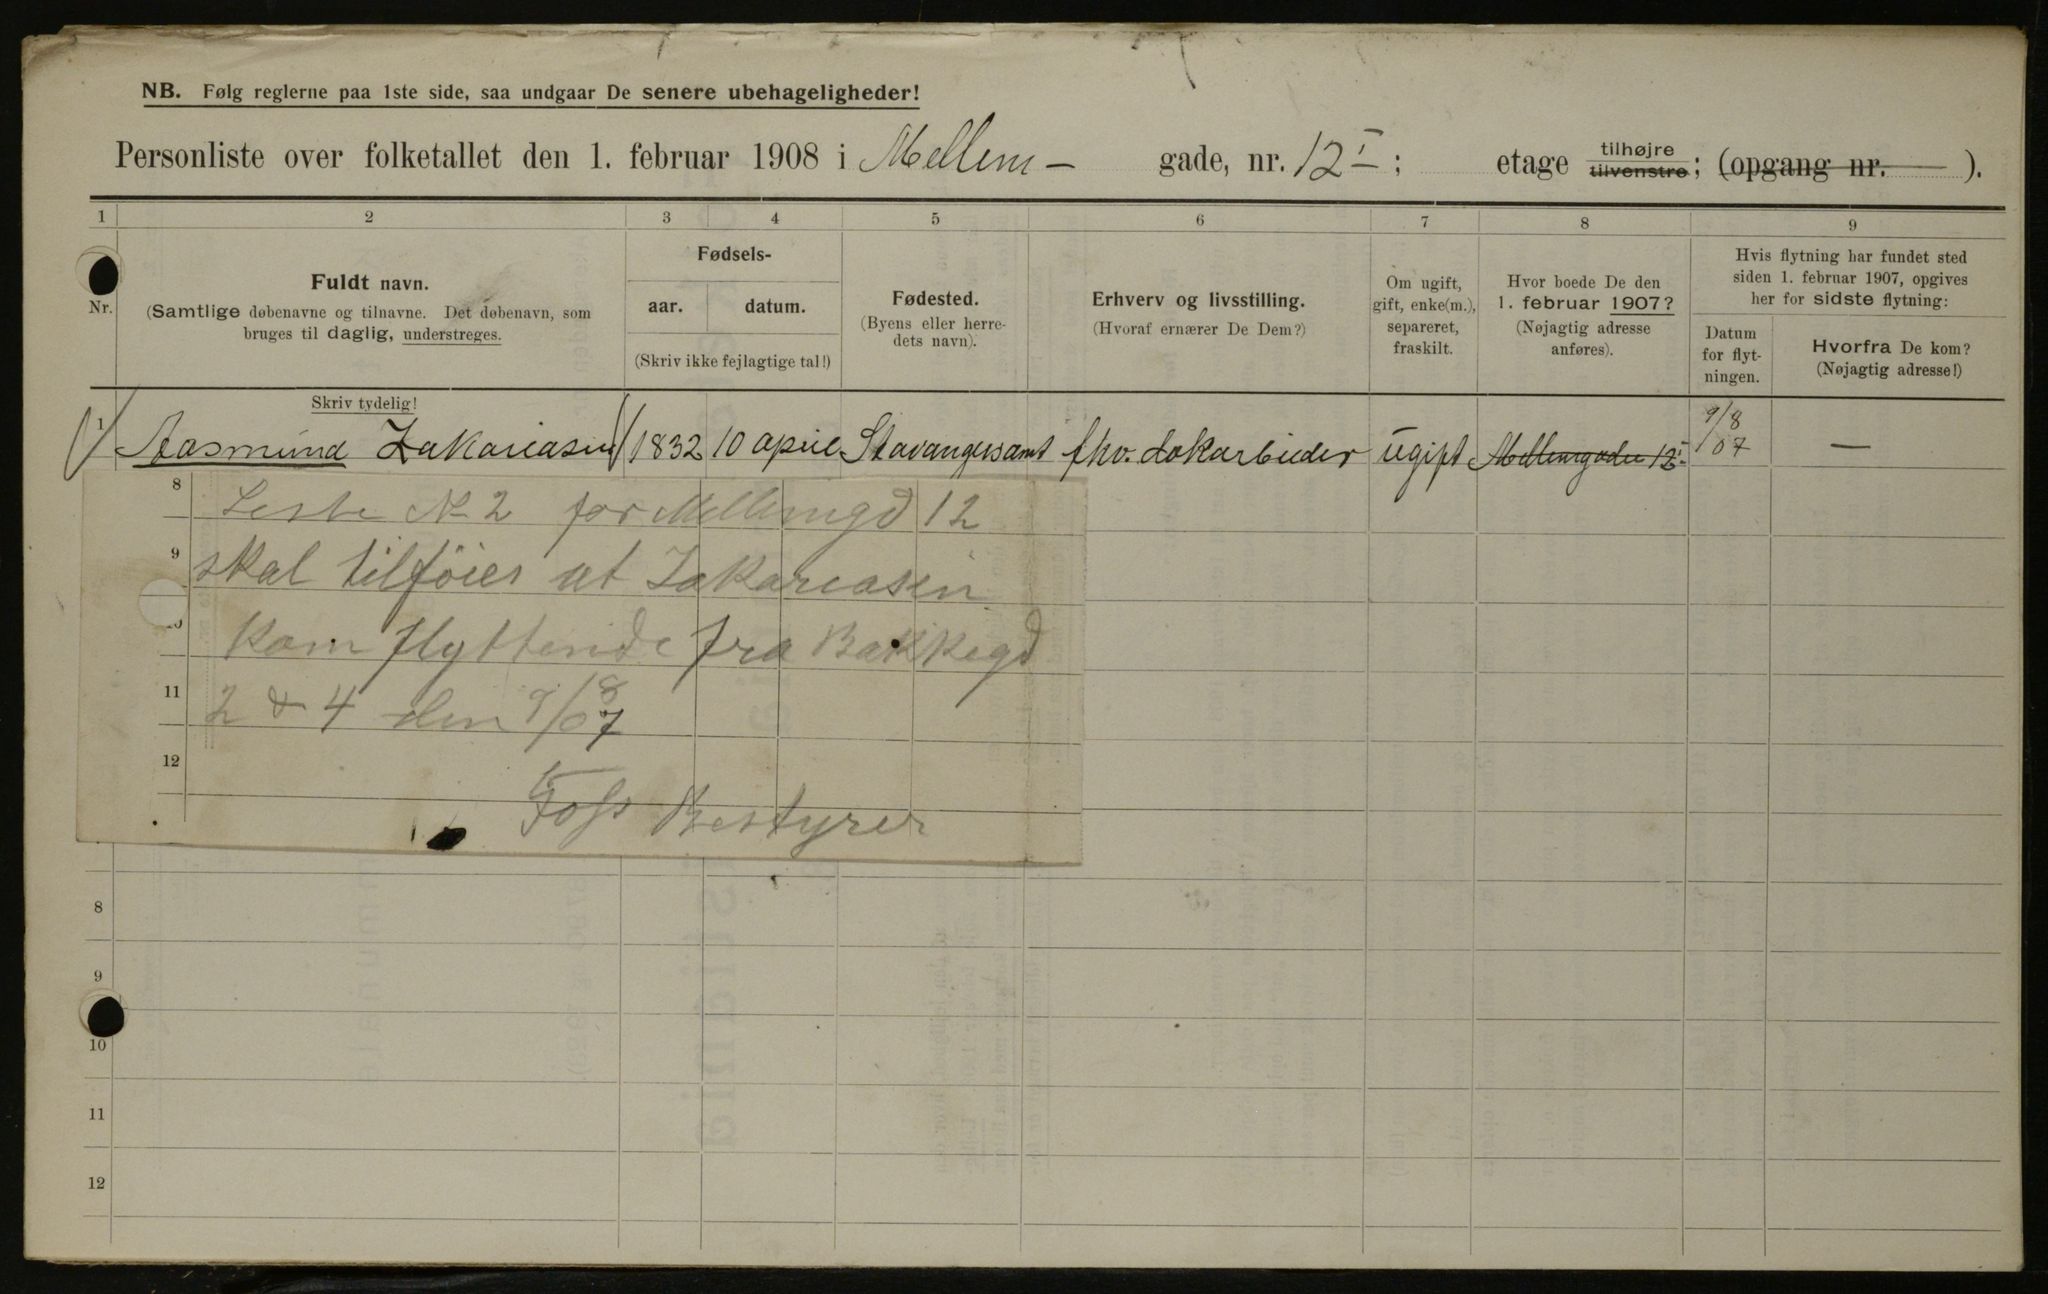 NB. Følg reglerne paa 1ste side, saa undgaar De senere ubehageligheder!
Personliste over folketallet den 1. februar 1908 i Mellem- gade, nr. 12 I; etage tilhøjre tilvenstre; (opgang nr. ).
1 2 3 4 5 6 7 8 9
Nr.
Fuldt navn.
(Samtlige døbenavne og tilnavne. Det døbenavn, som
bruges til daglig, understreges.
Fødsels-
aar. datum.
(Skriv ikke fejlagtige tal!)
Fødested.
(Byens eller herre-
dets navn).
Erhverv og livsstilling.
(Hvoraf ernærer De Dem?)
Om ugift,
gift, enke(m.),
separeret,
fraskilt.
Hvor boede De den
1. februar 1907?
(Nøjagtig adresse
anføres).
Hvis flytning har fundet sted
siden 1. februar 1907, opgives
her for sidste flytning:
Datum
for flyt-
ningen.
Hvorfra De kom?
(Nøjagtig adresse!)
Skriv tydelig!
1 Aasmund Zakariasen 1832 10 april Stavangersamt fhv. dokarbeider ugift Mellemgaden 12 I 9/8 07 —
8
Liste N 2 for Mellemgd 12
9
skal tilföies at Zakariasen
10
kom flyttende fra Bakkegd
11
2 & 4 den 9/8 07
12
Foss Bestyrer
8
9
10
11
12